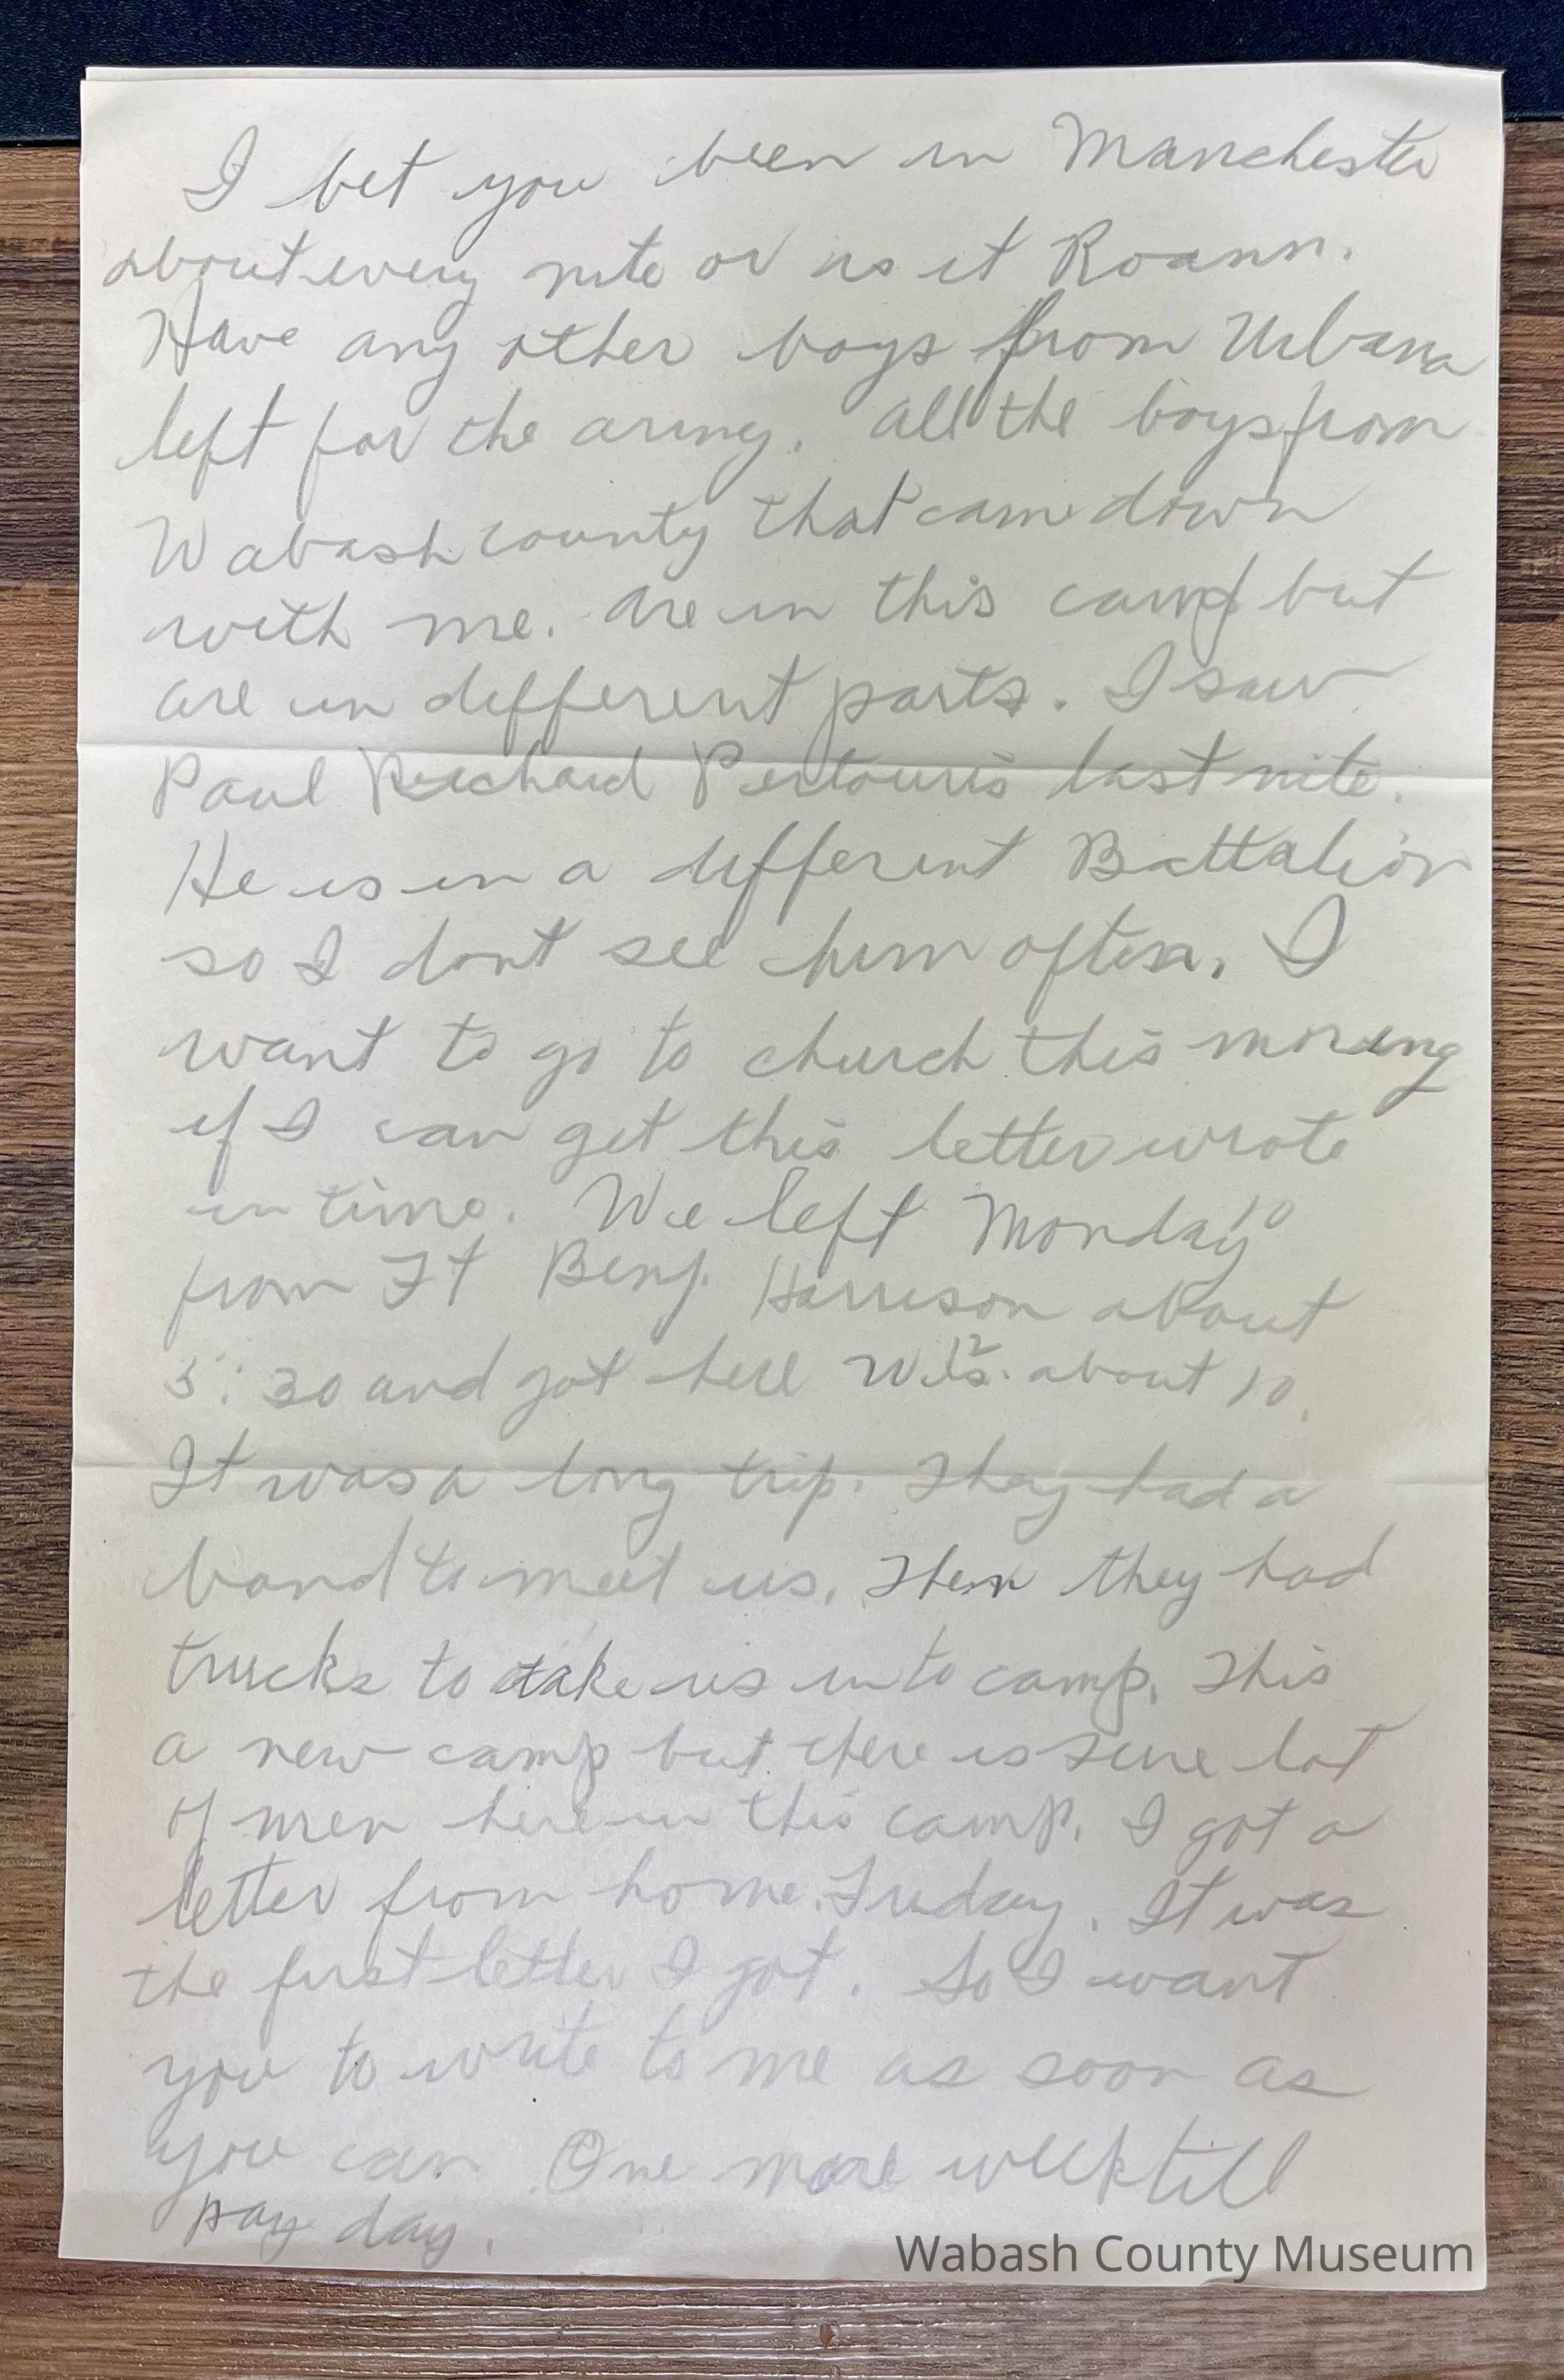 I bet you been in Manchester
about every nite or is it Roann.
Have any other boys from Urbana
left for the army. All the boys from
Wabash county that came down
with me. are in this camp but
are in different parts. I saw
Paul Richard last nite.
He is in a different Battalion
so I dont see him often. I
want to go to church this moring
if I can get this letter wrote
in time. We left Monday 10
from Ft Benj. Harrison about
5:30 and got here about 10.
It was a long trip. They had a
band to meet us. Then they had
trucks to take us into camp. This
a new camp but there is sure lot
of men here in this camp. I got a
letter from home Friday. It was
the first letter I got. So I want
you to write to me as soon as
you can. One more week till
pay day.
Wabash County Museum